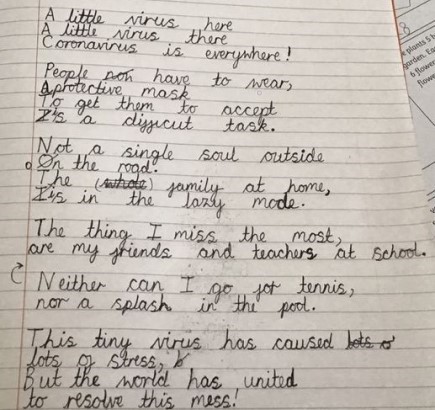 A little virus here
A little virus there
Coronavirus is everywhere!
People have to wear,
A protective mask
To get them to accept
It's a difficut task.
Not a single soul outside
On the road.
The (whole) family at home,
It's in the lazy mode.
The thing I miss the most,
are my friends and teachers at school.
Neither can I go for tennis,
nor a splash in the pool.
This tiny virus has caused lots o
lots of stress,
But the world has united
to resolve this mess!
8
plants 5 b
garden. Ea
6 flower